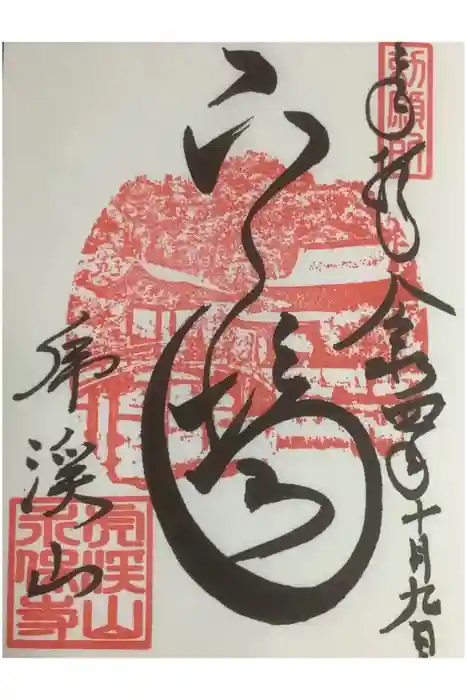 勅願所
奉拝
令和四年十月九日
水月場
虎溪山
虎渓山
永保寺